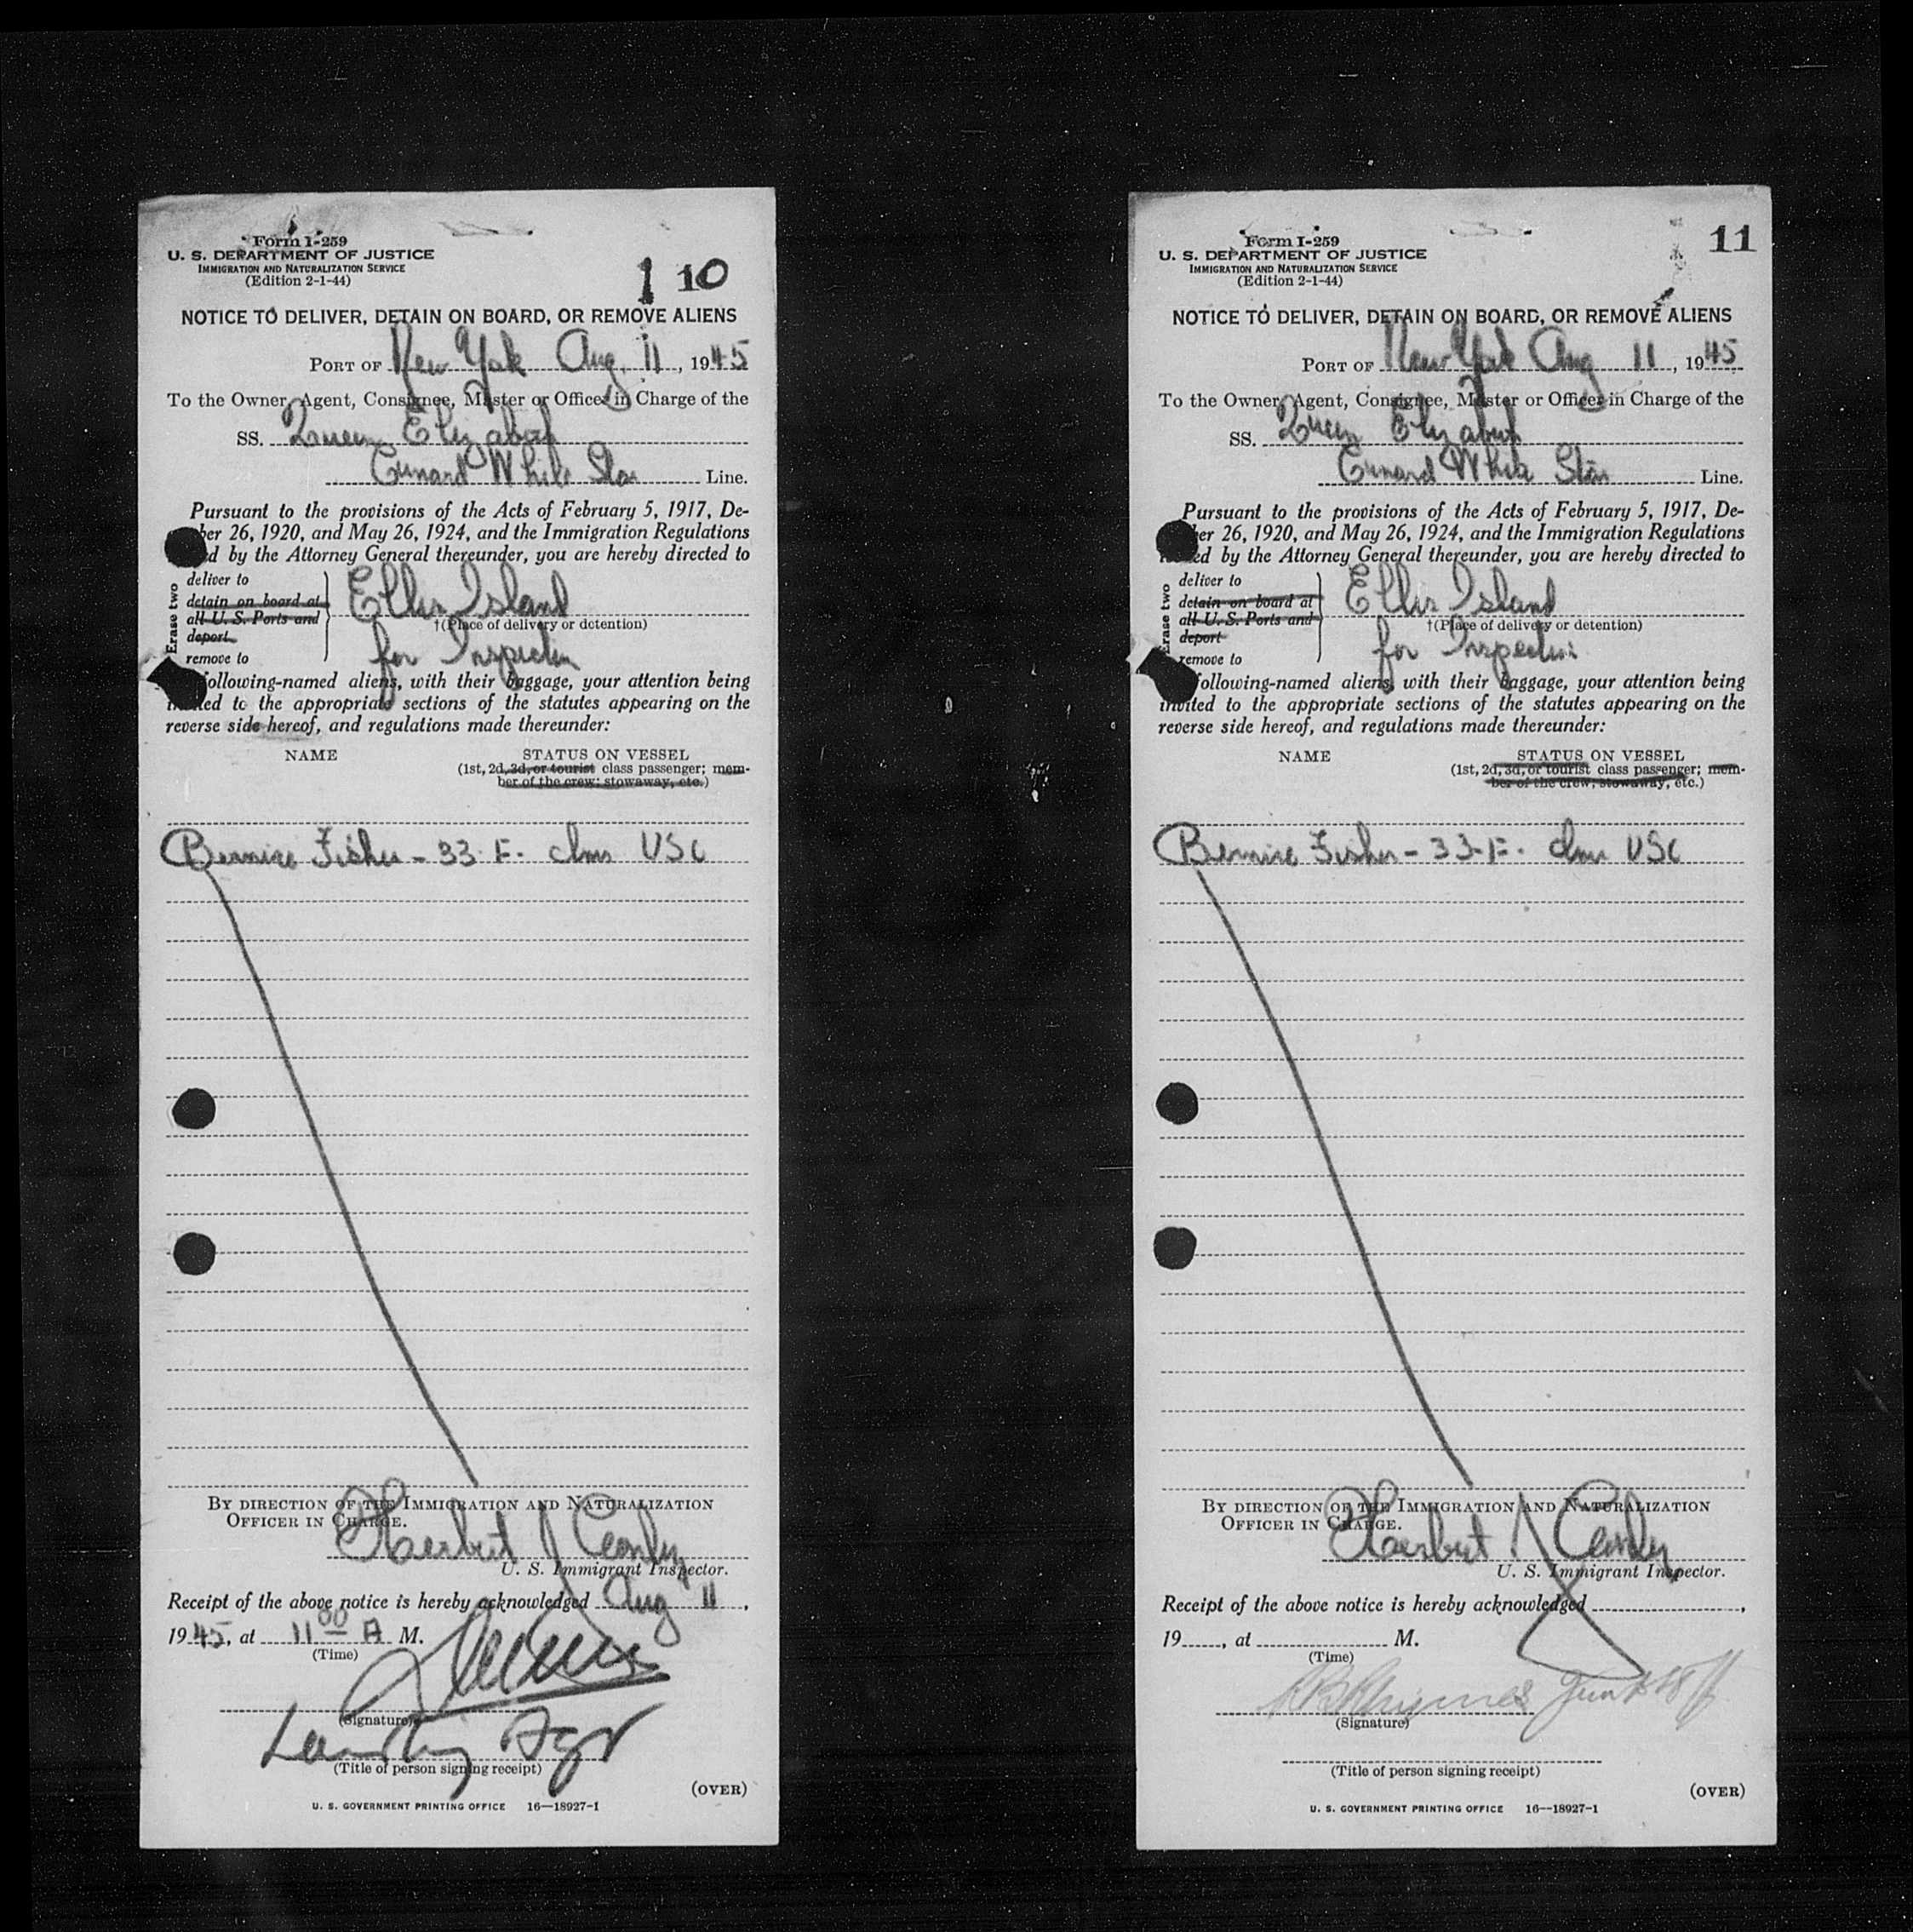 Form I-259
U. S. DEPARTMENT OF JUSTICE
IMMIGRATION AND NATURALIZATION SERVICE
(Edition 2-1-44)
1 10
NOTICE TO DELIVER, DETAIN ON BOARD, OR REMOVE ALIENS
PORT OF New York Aug. 11, 1945
To the Owner, Agent, Consignee, Master or Officer in Charge of the
SS. Queen Elizabeth
Cunard White Star Line.
Pursuant to the provisions of the Acts of February 5, 1917, De-
ber 26, 1920, and May 26, 1924, and the Immigration Regulations
d by the Attorney General thereunder, you are hereby directed to
Erase two
deliver to
detain on board at
all U. S. Ports and
deport
remove to
Ellis Island
†(Place of delivery or detention)
for Inspection
following-named aliens, with their baggage, your attention being
invited to the appropriate sections of the statutes appearing on the
reverse side hereof, and regulations made thereunder:
NAME STATUS ON VESSEL
(1st, 2d, 3d, or tourist class passenger; mem-
ber of the crew; stowaway, etc.)
Bernice Fisher - 33. F. clms USC
BY DIRECTION OF THE IMMIGRATION AND NATURALIZATION
OFFICER IN CHARGE.
Herbert J
U. S. Immigrant Inspector.
Receipt of the above notice is hereby acknowledged Aug 11,
1945, at 11 00 A M.
(Time)
(Signature)
Landing Agt
(Title of person signing receipt)
(OVER)
U. S. GOVERNMENT PRINTING OFFICE 16—18927-1
Form I-259
U. S. DEPARTMENT OF JUSTICE
IMMIGRATION AND NATURALIZATION SERVICE
(Edition 2-1-44)
11
NOTICE TO DELIVER, DETAIN ON BOARD, OR REMOVE ALIENS
PORT OF New York Aug 11, 1945
To the Owner, Agent, Consignee, Master or Officer in Charge of the
SS. Queen Elizabeth
Cunard White Star Line.
Pursuant to the provisions of the Acts of February 5, 1917, De-
ber 26, 1920, and May 26, 1924, and the Immigration Regulations
ed by the Attorney General thereunder, you are hereby directed to
Erase two
deliver to
detain on board at
all U. S. Ports and
deport
remove to
Ellis Island
†(Place of delivery or detention)
for Inspection
following-named aliens, with their baggage, your attention being
invited to the appropriate sections of the statutes appearing on the
reverse side hereof, and regulations made thereunder:
NAME STATUS ON VESSEL
(1st, 2d, 3d, or tourist class passenger; mem-
ber of the crew; stowaway, etc.)
Bernice Fisher - 33-F. clms USC
BY DIRECTION OF THE IMMIGRATION AND NATURALIZATION
OFFICER IN CHARGE.
Herbert J
U. S. Immigrant Inspector.
Receipt of the above notice is hereby acknowledged ,
19 , at M.
(Time)
(Signature)
(Title of person signing receipt)
(OVER)
U. S. GOVERNMENT PRINTING OFFICE 16—18927-1